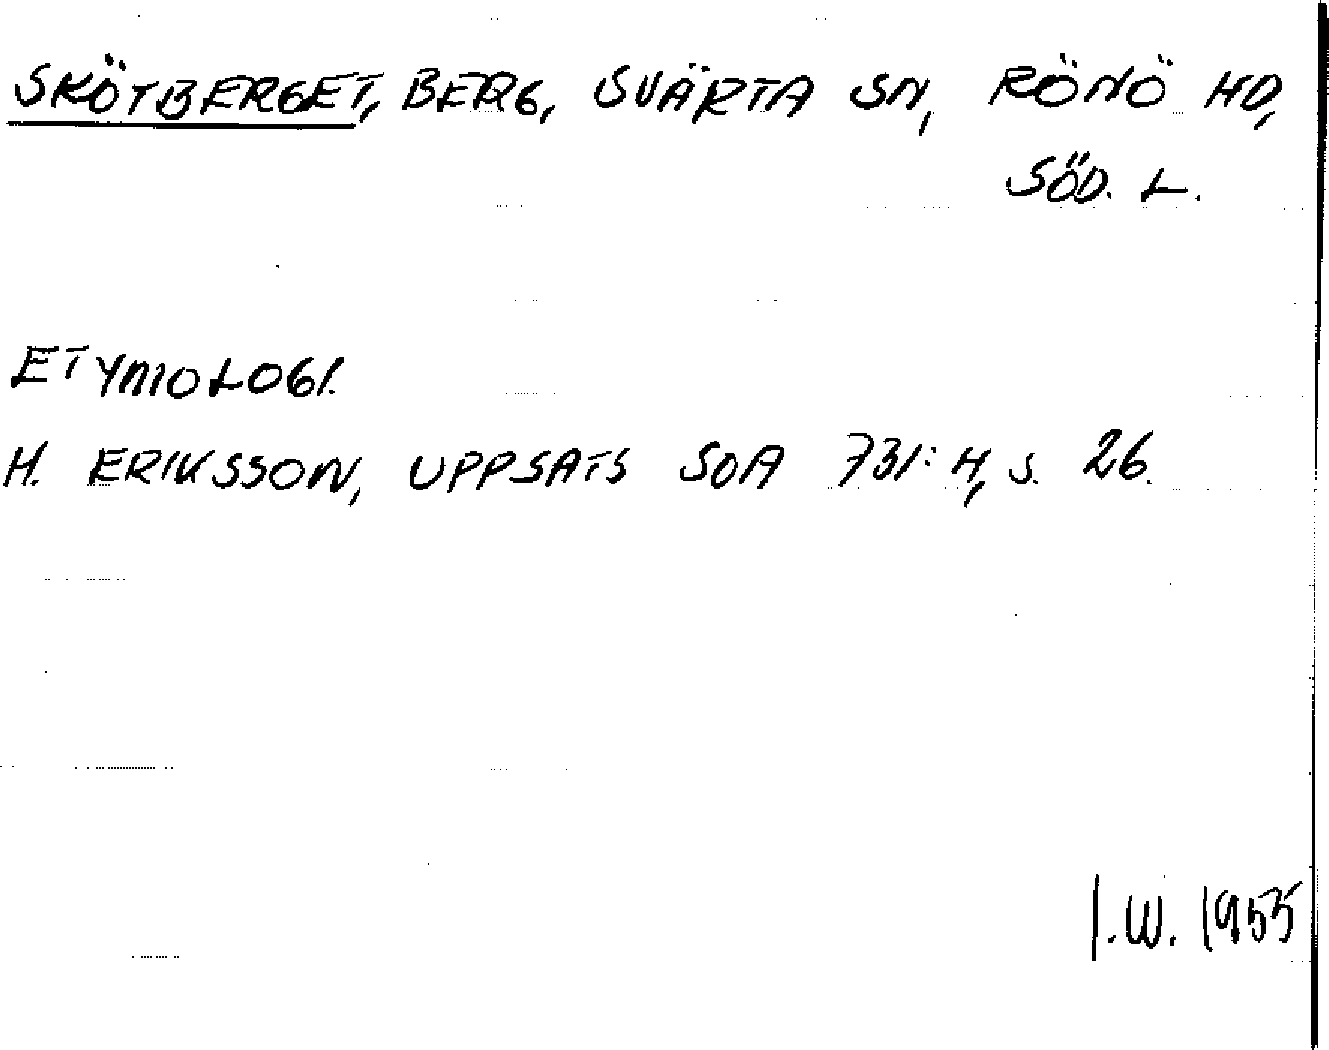 SKÖTBERGET, BERG, SVÄRTA SN, RÖNÖ HD,
SÖD. L.
ETYMOLOGI.
H. ERIKSSON, UPPSATS SOA 731:4, S. 26.
I.W. 1955